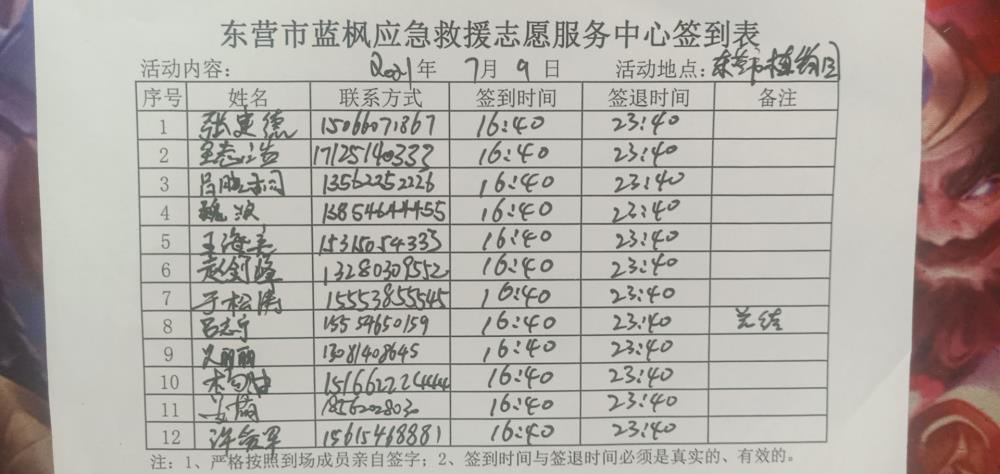 东营市蓝枫应急救援志愿服务中心签到表
活动内容： 2021年 7月 9日 活动地点：东营市植物园
序号 姓名 联系方式 签到时间 签退时间 备注
1 张建德 15066071867 16:40 23:40
2 17125140333 16:40 23:40
3 13562252226 16:40 23:40
4 魏波 13854644455 16:40 23:40
5 王海英 15315054333 16:40 23:40
6 赵剑峰 13280309552 16:40 23:40
7 于松涛 15553855545 16:40 23:40
8 吕志宁 15554650159 16:40 23:40
9 16:40 23:40
10 16:40 23:40
11 16:40 23:40
12 15615468881 16:40 23:40
注：1、严格按照到场成员亲自签字；2、签到时间与签退时间必须是真实的、有效的。